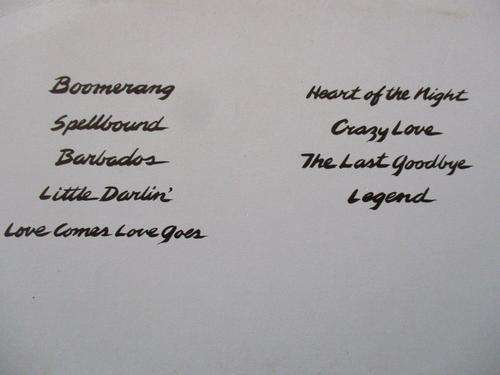 Boomerang
Spellbound
Barbados
Little Darlin'
Love Comes Love Goes
Heart of the Night
Crazy Love
The Last Goodbye
Legend